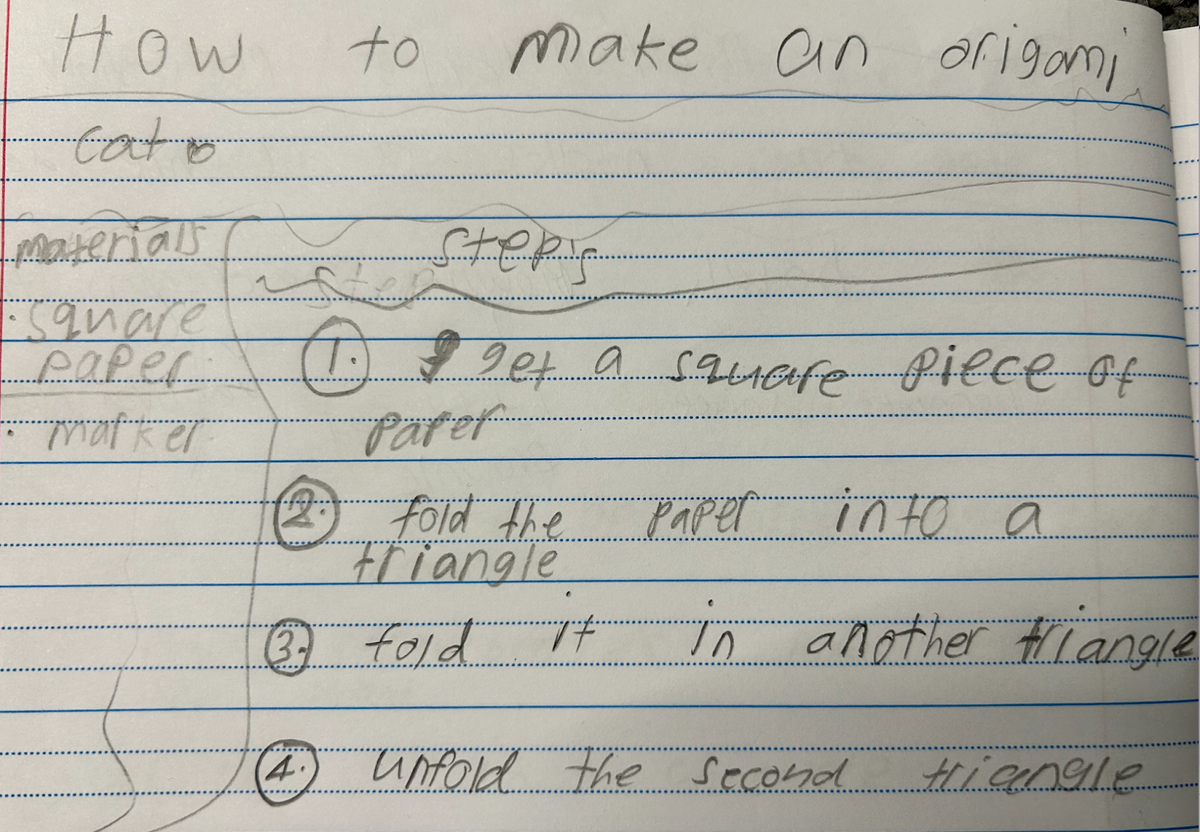 How to make an origami
cat
materials
• square
paper
• marker
step's
step
1. get a square piece of
paper
2. fold the paper into a
triangle
3. fold it in another triangle
4. unfold the second triangle